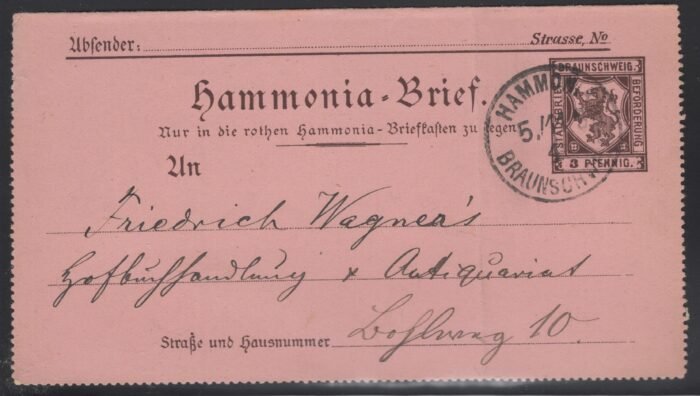 Absender:
Strasse, No
BRAUNSCHWEIG.
BEFÖRDERUNG
3 PFENNIG.
Hammonia-Brief.
Nur in die rothen Hammonia-Briefkasten zu legen
HAMMON
BRAUNSCHW
An
Friedrich Wagner's
Hofbuchhandlung & Antiquariat
Straße und Hausnummer Bohlweg 10.